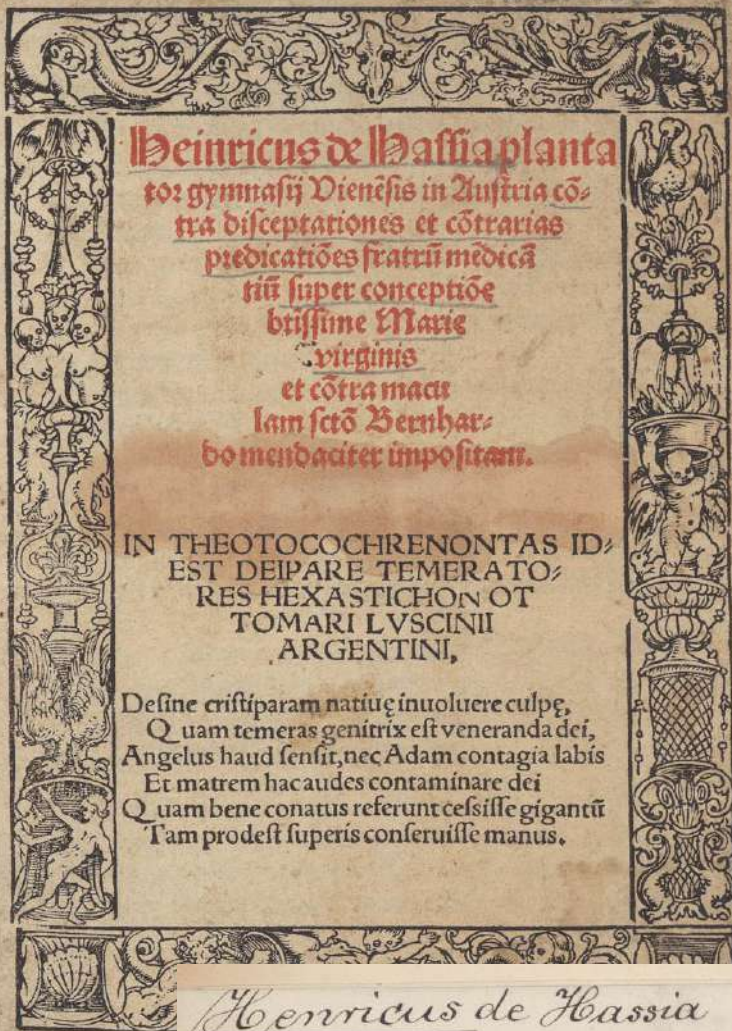 Heinricus de Hassia planta
tor gymnasij Vienẽsis in Austria cõ⸗
tra disceptationes et cõtrarias
predicatiões fratrũ mẽdicã
tiũ super conceptiõe
btissime Marię
virginis
et cõtra macu
lam sctõ Bernhar⸗
do mendaciter impositam.
IN THEOTOCOCHRENONTAS ID⸗
EST DEIPARE TEMERATO⸗
RES HEXASTICHON OT
TOMARI LVSCINII
ARGENTINI,
Desine cristiparam natiuę inuoluere culpę,
Quam temeras genitrix est veneranda dei,
Angelus haud sensit, nec Adam contagia labis
Et matrem hac audes contaminare dei
Quam bene conatus referunt cessisse gigantũ
Tam prodest superis conseruisse manus.
Henricus de Hassia